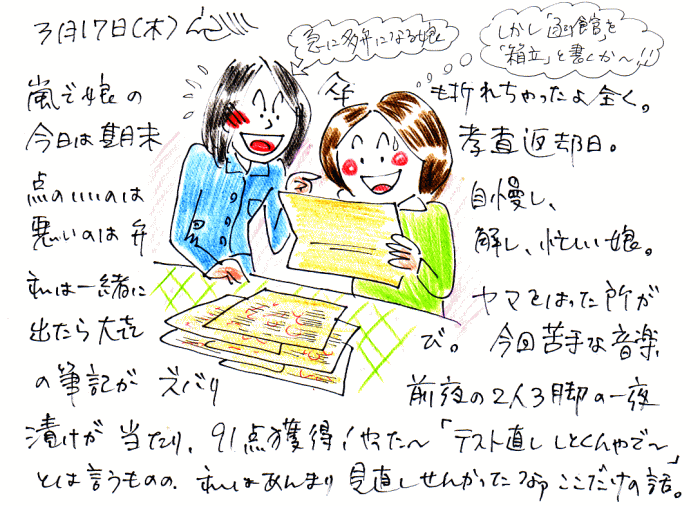 3月17日(木)
急に多弁になる娘
しかし「函館」を
「箱立」と書くか〜!!
嵐で娘の 傘 も折れちゃったよ全く。
今日は期末 考査返却日。
点のいいのは 自慢し、
悪いのは弁 解し、忙しい娘。
私は一緒に ヤマをはった所が
出たら大喜 び。今回苦手な音楽
の筆記が ズバリ 前夜の2人3脚の一夜
漬けが当たり、91点獲得!やった〜「テスト直ししとくんやで〜」
とは言うものの、私はあんまり見直しせんかったなァ ここだけの話。